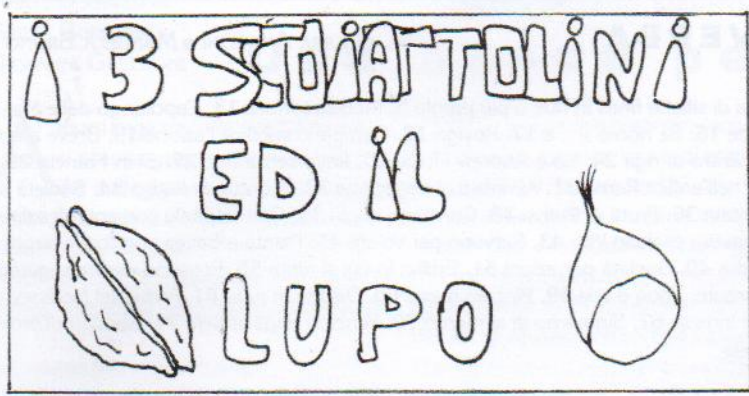 i 3 SCOiATTOLiNi
ED iL
LUPO